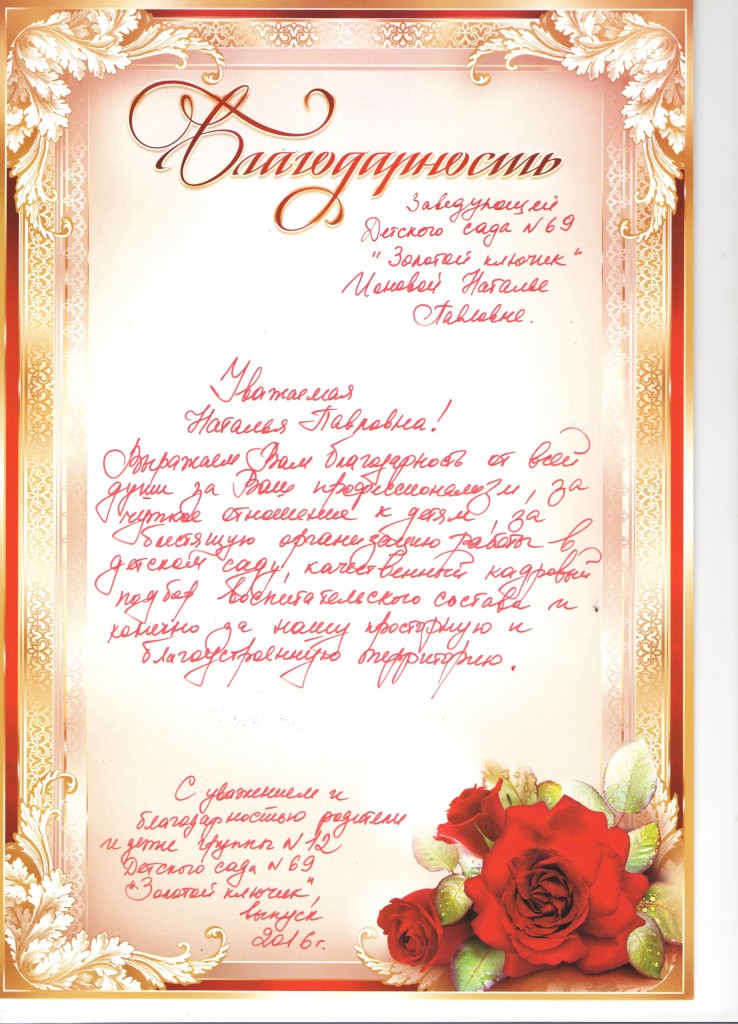 Благодарность
Заведующей
Детского сада №69
"Золотой ключик"
Ионовой Наталье
Павловне.
Уважаемая
Наталья Павловна!
Выражаем Вам благодарность от всей
души за Ваш профессионализм, за
чуткое отношение к детям, за
блестящую организацию работы в
детском саду, качественный кадровый
подбор воспитательского состава и
конечно за нашу просторную и
благоустроенную территорию.
С уважением и
благодарностью родители
и дети группы №12
Детского сада №69
"Золотой ключик",
выпуск
2016г.